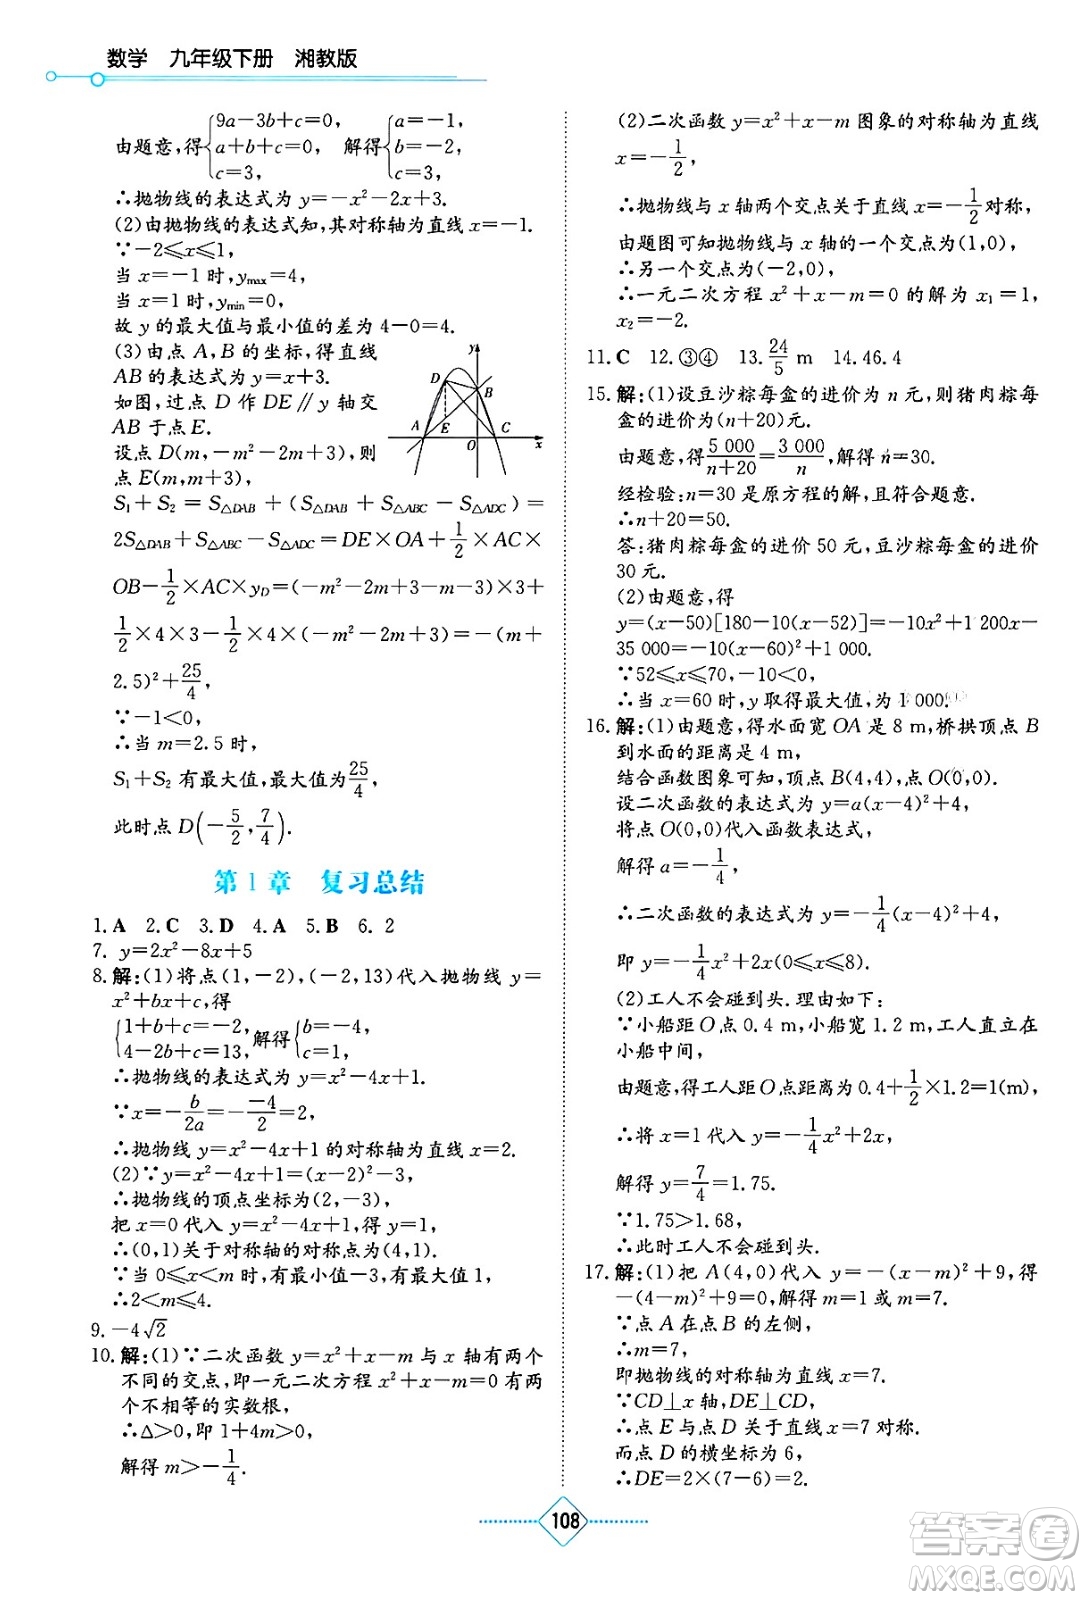 数学　九年级下册　湘教版
由题意,得{9a-3b+c=0, a+b+c=0, c=3, 解得{a=-1, b=-2, c=3,
∴抛物线的表达式为 y=-x²-2x+3.
(2)由抛物线的表达式知,其对称轴为直线 x=-1.
∵-2≤x≤1,
当 x=-1 时,y_max=4,
当 x=1 时,y_min=0,
故 y 的最大值与最小值的差为 4-0=4.
(3)由点 A,B 的坐标,得直线
AB 的表达式为 y=x+3.
如图,过点 D 作 DE∥y 轴交
AB 于点 E.
设点 D(m,-m²-2m+3),则
点 E(m,m+3),
y
D
B
A
E
O
C
x
S₁+S₂=S△DAB+(S△DAB+S△ABC-S△ADC)=
2S△DAB+S△ABC-S△ADC=DE×OA+1/2×AC×
OB-1/2×AC×y_D=(-m²-2m+3-m-3)×3+
1/2×4×3-1/2×4×(-m²-2m+3)=-(m+
2.5)²+25/4,
∵-1<0,
∴当 m=2.5 时,
S₁+S₂ 有最大值,最大值为25/4,
此时点 D(-5/2,7/4).
第 1 章　复习总结
1. A　2. C　3. D　4. A　5. B　6. 2
7. y=2x²-8x+5
8. 解:(1)将点(1,-2),(-2,13)代入抛物线 y=
x²+bx+c,得
{1+b+c=-2, 4-2b+c=13, 解得{b=-4, c=1,
∴抛物线的表达式为 y=x²-4x+1.
∵x=-b/2a=--4/2=2,
∴抛物线 y=x²-4x+1 的对称轴为直线 x=2.
(2)∵y=x²-4x+1=(x-2)²-3,
∴抛物线的顶点坐标为(2,-3),
把 x=0 代入 y=x²-4x+1,得 y=1,
∴(0,1)关于对称轴的对称点为(4,1).
∵当 0≤x<m 时,有最小值-3,有最大值 1,
∴2<m≤4.
9. -4√2
10. 解:(1)∵二次函数 y=x²+x-m 与 x 轴有两个
不同的交点,即一元二次方程 x²+x-m=0 有两
个不相等的实数根,
∴Δ>0,即 1+4m>0,
解得 m>-1/4.
(2)二次函数 y=x²+x-m 图象的对称轴为直线
x=-1/2,
∴抛物线与 x 轴两个交点关于直线 x=-1/2对称,
由题图可知抛物线与 x 轴的一个交点为(1,0),
∴另一个交点为(-2,0),
∴一元二次方程 x²+x-m=0 的解为 x₁=1,
x₂=-2.
11. C　12. ③④　13. 24/5 m　14. 46.4
15. 解:(1)设豆沙粽每盒的进价为 n 元,则猪肉粽每
盒的进价为(n+20)元.
由题意,得5 000/n+20=3 000/n,解得 n=30.
经检验:n=30 是原方程的解,且符合题意.
∴n+20=50.
答:猪肉粽每盒的进价 50 元,豆沙粽每盒的进价
30 元.
(2)由题意,得
y=(x-50)[180-10(x-52)]=-10x²+1 200x-
35 000=-10(x-60)²+1 000.
∵52≤x≤70,-10<0,
∴当 x=60 时,y 取得最大值,为 1 000.
16. 解:(1)由题意,得水面宽 OA 是 8 m,桥拱顶点 B
到水面的距离是 4 m,
结合函数图象可知,顶点 B(4,4),点 O(0,0).
设二次函数的表达式为 y=a(x-4)²+4,
将点 O(0,0)代入函数表达式,
解得 a=-1/4,
∴二次函数的表达式为 y=-1/4(x-4)²+4,
即 y=-1/4x²+2x(0≤x≤8).
(2)工人不会碰到头.理由如下:
∵小船距 O 点 0.4 m,小船宽 1.2 m,工人直立在
小船中间,
由题意,得工人距 O 点距离为 0.4+1/2×1.2=1(m),
∴将 x=1 代入 y=-1/4x²+2x,
解得 y=7/4=1.75.
∵1.75>1.68,
∴此时工人不会碰到头.
17. 解:(1)把 A(4,0)代入 y=-(x-m)²+9,得
-(4-m)²+9=0,解得 m=1 或 m=7.
∵点 A 在点 B 的左侧,
∴m=7,
即抛物线的对称轴为直线 x=7.
∵CD⊥x 轴,DE⊥CD,
∴点 E 与点 D 关于直线 x=7 对称.
而点 D 的横坐标为 6,
∴DE=2×(7-6)=2.
108
答案卷
MXQE.COM